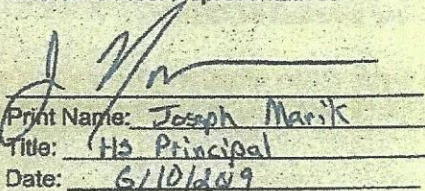 Print Name: Joseph Marik
Title: HS Principal
Date: 6/10/2009